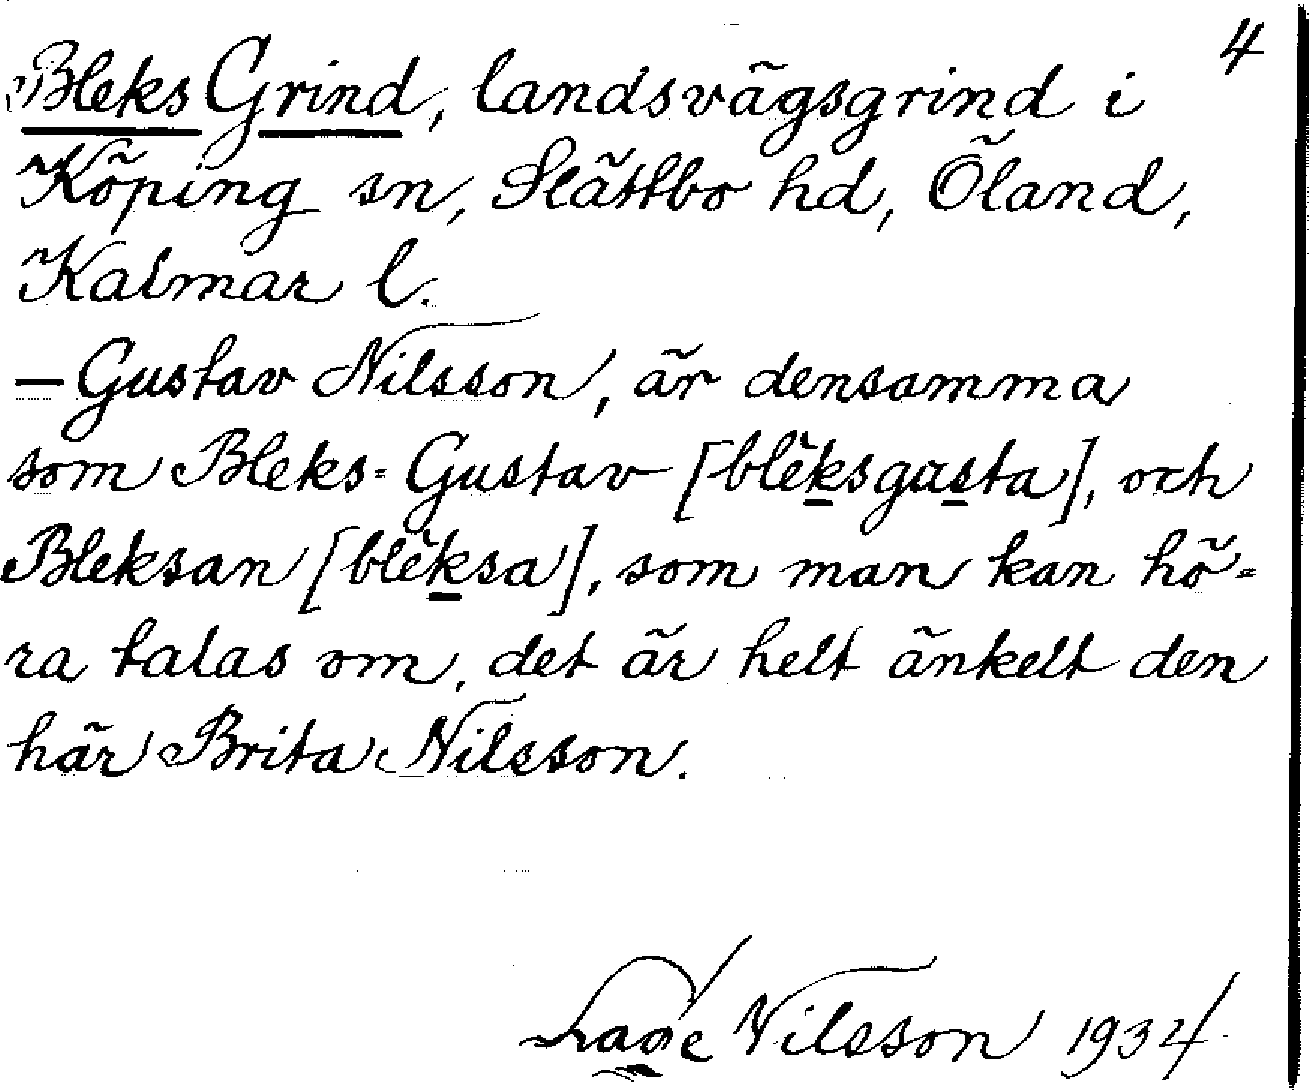 4
Bleks Grind, landsvägsgrind i
Köping sn, Slättbo hd, Öland,
Kalmar l.
— Gustav Nilsson, är densamma
som Bleks-Gustav [blèksgusta], och
Bleksan [blèksa], som man kan hö-
ra talas om, det är helt änkelt den
här Brita Nilsson.
Nilsson 1934